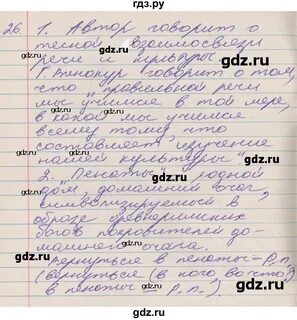 гдз.ру
26 1. Автор говорит о
тесной взаимосвязи
речи и культуры.
Г. Винокур говорит о том,
что "правильной речи
мы учимся в той мере,
в какой мы учимся
всему тому, что
составляет изучение
нашей культуры".
2. "Пенаты" - родной
дом, домашний очаг,
символизируемый в
образе древнеримских
богов покровителей до-
машнего очага.
Вернуться в пенаты - Р.п.
(вернуться (в кого, во что)
в пенаты = Р.п.),
gdz.ru
gdz.ru
gdz.ru
gdz.ru
gdz.ru
gdz.ru
gdz.ru
gdz.ru